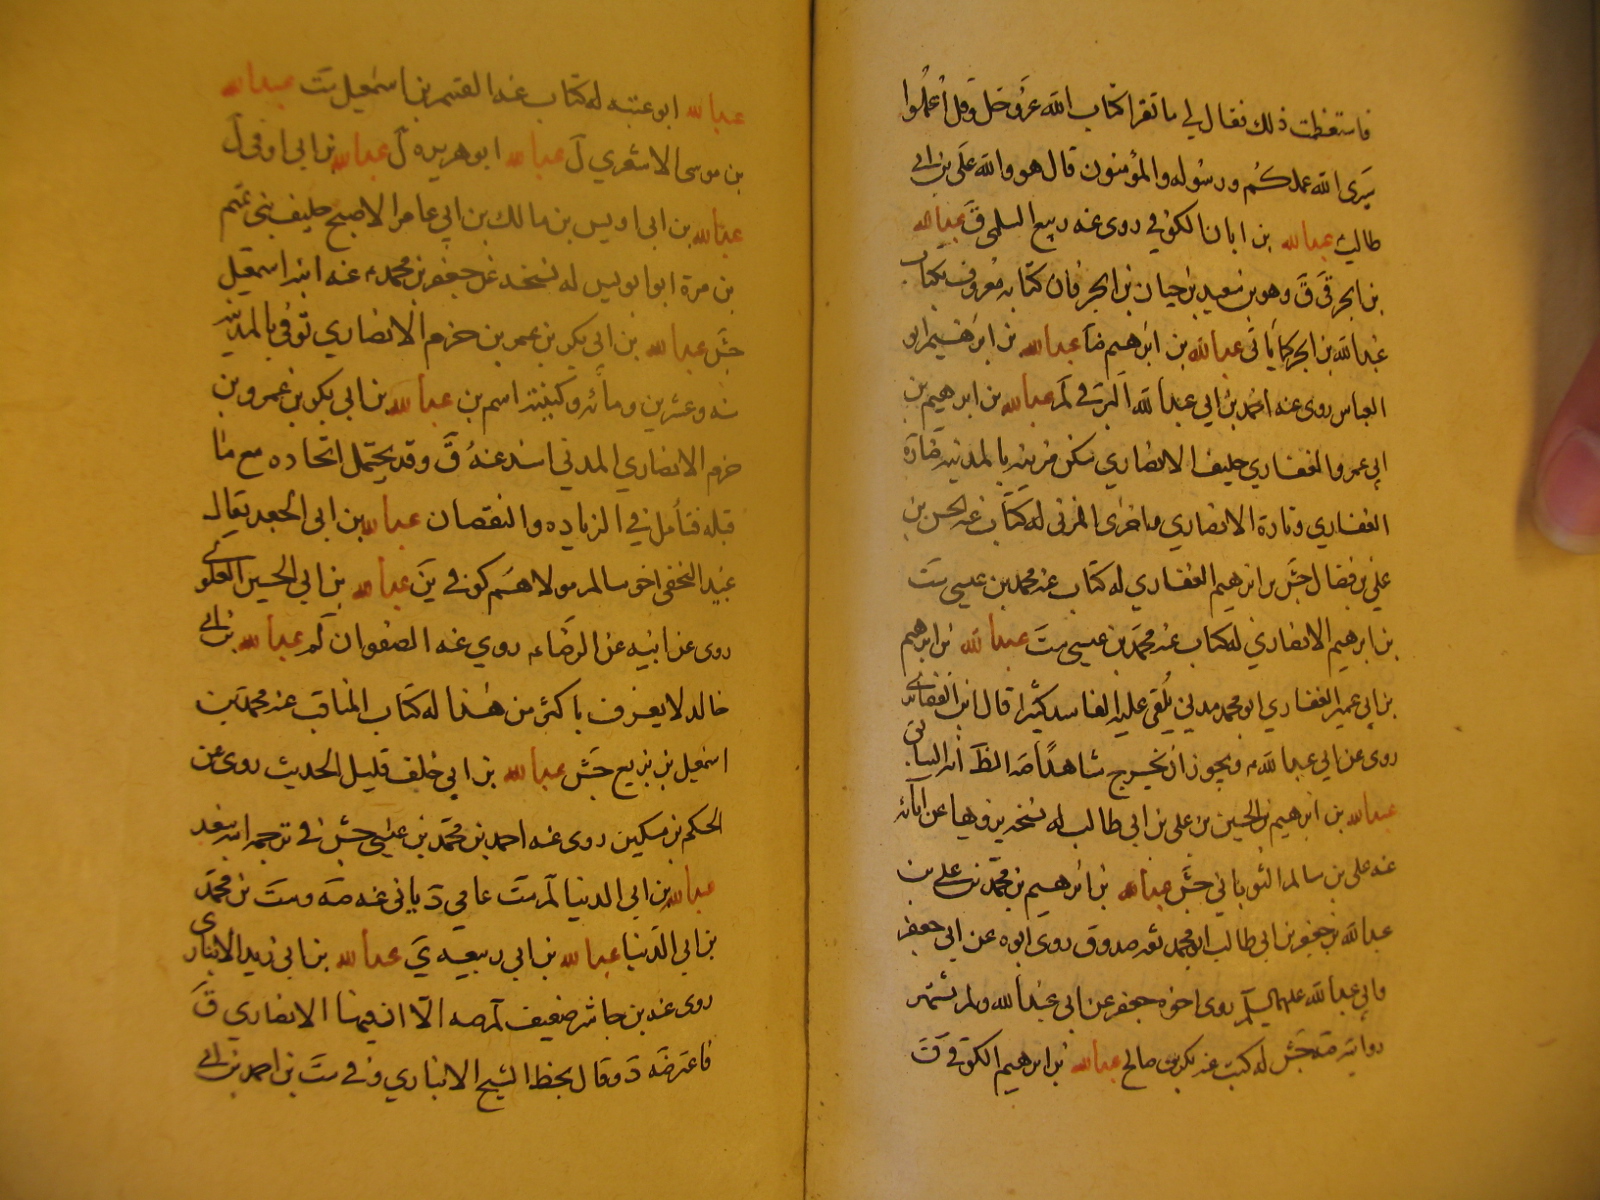 فاستعظمت ذلك فقال لي ما تقرا كتاب الله عز وجل وقل اعملوا
سيرى الله عملكم ورسوله والمؤمنون قال هو والله علي بن ابي
طالب عبدالله بن ابان الكوفي روى عنه ربيع السلمي ق عبدالله
بن ابجر ق ق وهو بن سعيد بن حيان بن ابجر فان كتابه معروف بكتاب
عبدالله بن ابجر كما ياتى عبدالله بن ابرهيم ضا عبدالله بن ابرهيم ابو
العباس روى عنه احمد بن ابي عبدالله البرقي لم عبدالله بن ابرهيم بن
ابي عمرو الغفاري حليف الانصاري سكن مزينه بالمدينه فتارة
الغفاري وتارة الانصاري واخرى المزني له كتاب عنه الحسن بن
علي بن فضال جش بن ابرهيم الغفاري له كتاب عنه محمد بن عيسى ست
بن ابرهيم الانصاري له كتاب عنه محمد بن عيسى ست عبدالله بن ابرهيم
بن ابي عمير الغفاري ابو محمد مدني يلقى عليه الفاسد كثيرا قال ابن الغضائري
روى عن ابي عبدالله ويجوز ان يخرج شاهدا صه الظ انه السابق
عبدالله بن ابرهيم بن الحسين بن علي بن ابي طالب له نسخه يرويها عن ابائه
عنه علي بن سالم الثوباني جش عبدالله بن ابرهيم بن محمد بن علي بن
عبدالله بن جعفر بن ابي طالب ابو محمد ثقه صدوق روى ابوه عن ابي جعفر
وابي عبدالله عليهما السلام روى اخوه جعفر عن ابي عبدالله ولم تشتهر
روايته صه جش له كتب عنه بكر بن صالح عبدالله بن ابرهيم الكوفي ق
عبدالله ابو عتبه له كتاب عنه القسم بن اسمعيل ست عبدالله
بن موسى الاشعري ل عبدالله ابو هريره ل عبدالله بن ابي اوفى ل
عبدالله بن ابى اويس بن مالك بن ابي عامر الاصبح حليف بنى تميم
بن مرة ابو اويس له نسخه عن جعفر بن محمد عنه ابنه اسمعيل
جش عبدالله بن ابي بكر بن عمر بن حزم الانصاري توفي بالمدينه
سنه وعشرين ومائه وكنيته اسم بن عبدالله بن ابي بكر بن عمرو بن
حزم الانصاري المدني اسند عنه ق وقد يحتمل اتحاده مع ما
قبله فتامل في الزياده والنقصان عبدالله بن ابى الجعد يقال
عبيد النخفى اخو سالم مولاهم كوفي ين عبدالله بن ابي الحسين العلوي
روى عن ابيه عن الرضا روي عنه الصفوان لم عبدالله بن ابي
خالد لا يعرف باكثر من هذا له كتاب المناقب عنه محمد بن
اسمعيل بن بزيع جش عبدالله بن ابي خلف قليل الحديث روى عن
الحكم بن مسكين روى عنه احمد بن محمد بن عيسى جش في ترجمه ابنه سعد
عبدالله بن ابي الدنيا لم ست عامي د ياتى عنه صه وست بن محمد
بن ابي الدنيا عبدالله بن ابي ربيعه ي عبدالله بن ابي زيد الانباري
روى عنه بن حاشر ضعيف لم صه الا ان فيها الانصاري ق
فاعترضه د وقال بخط الشيخ الانباري وفي ست بن احمد بن ابي